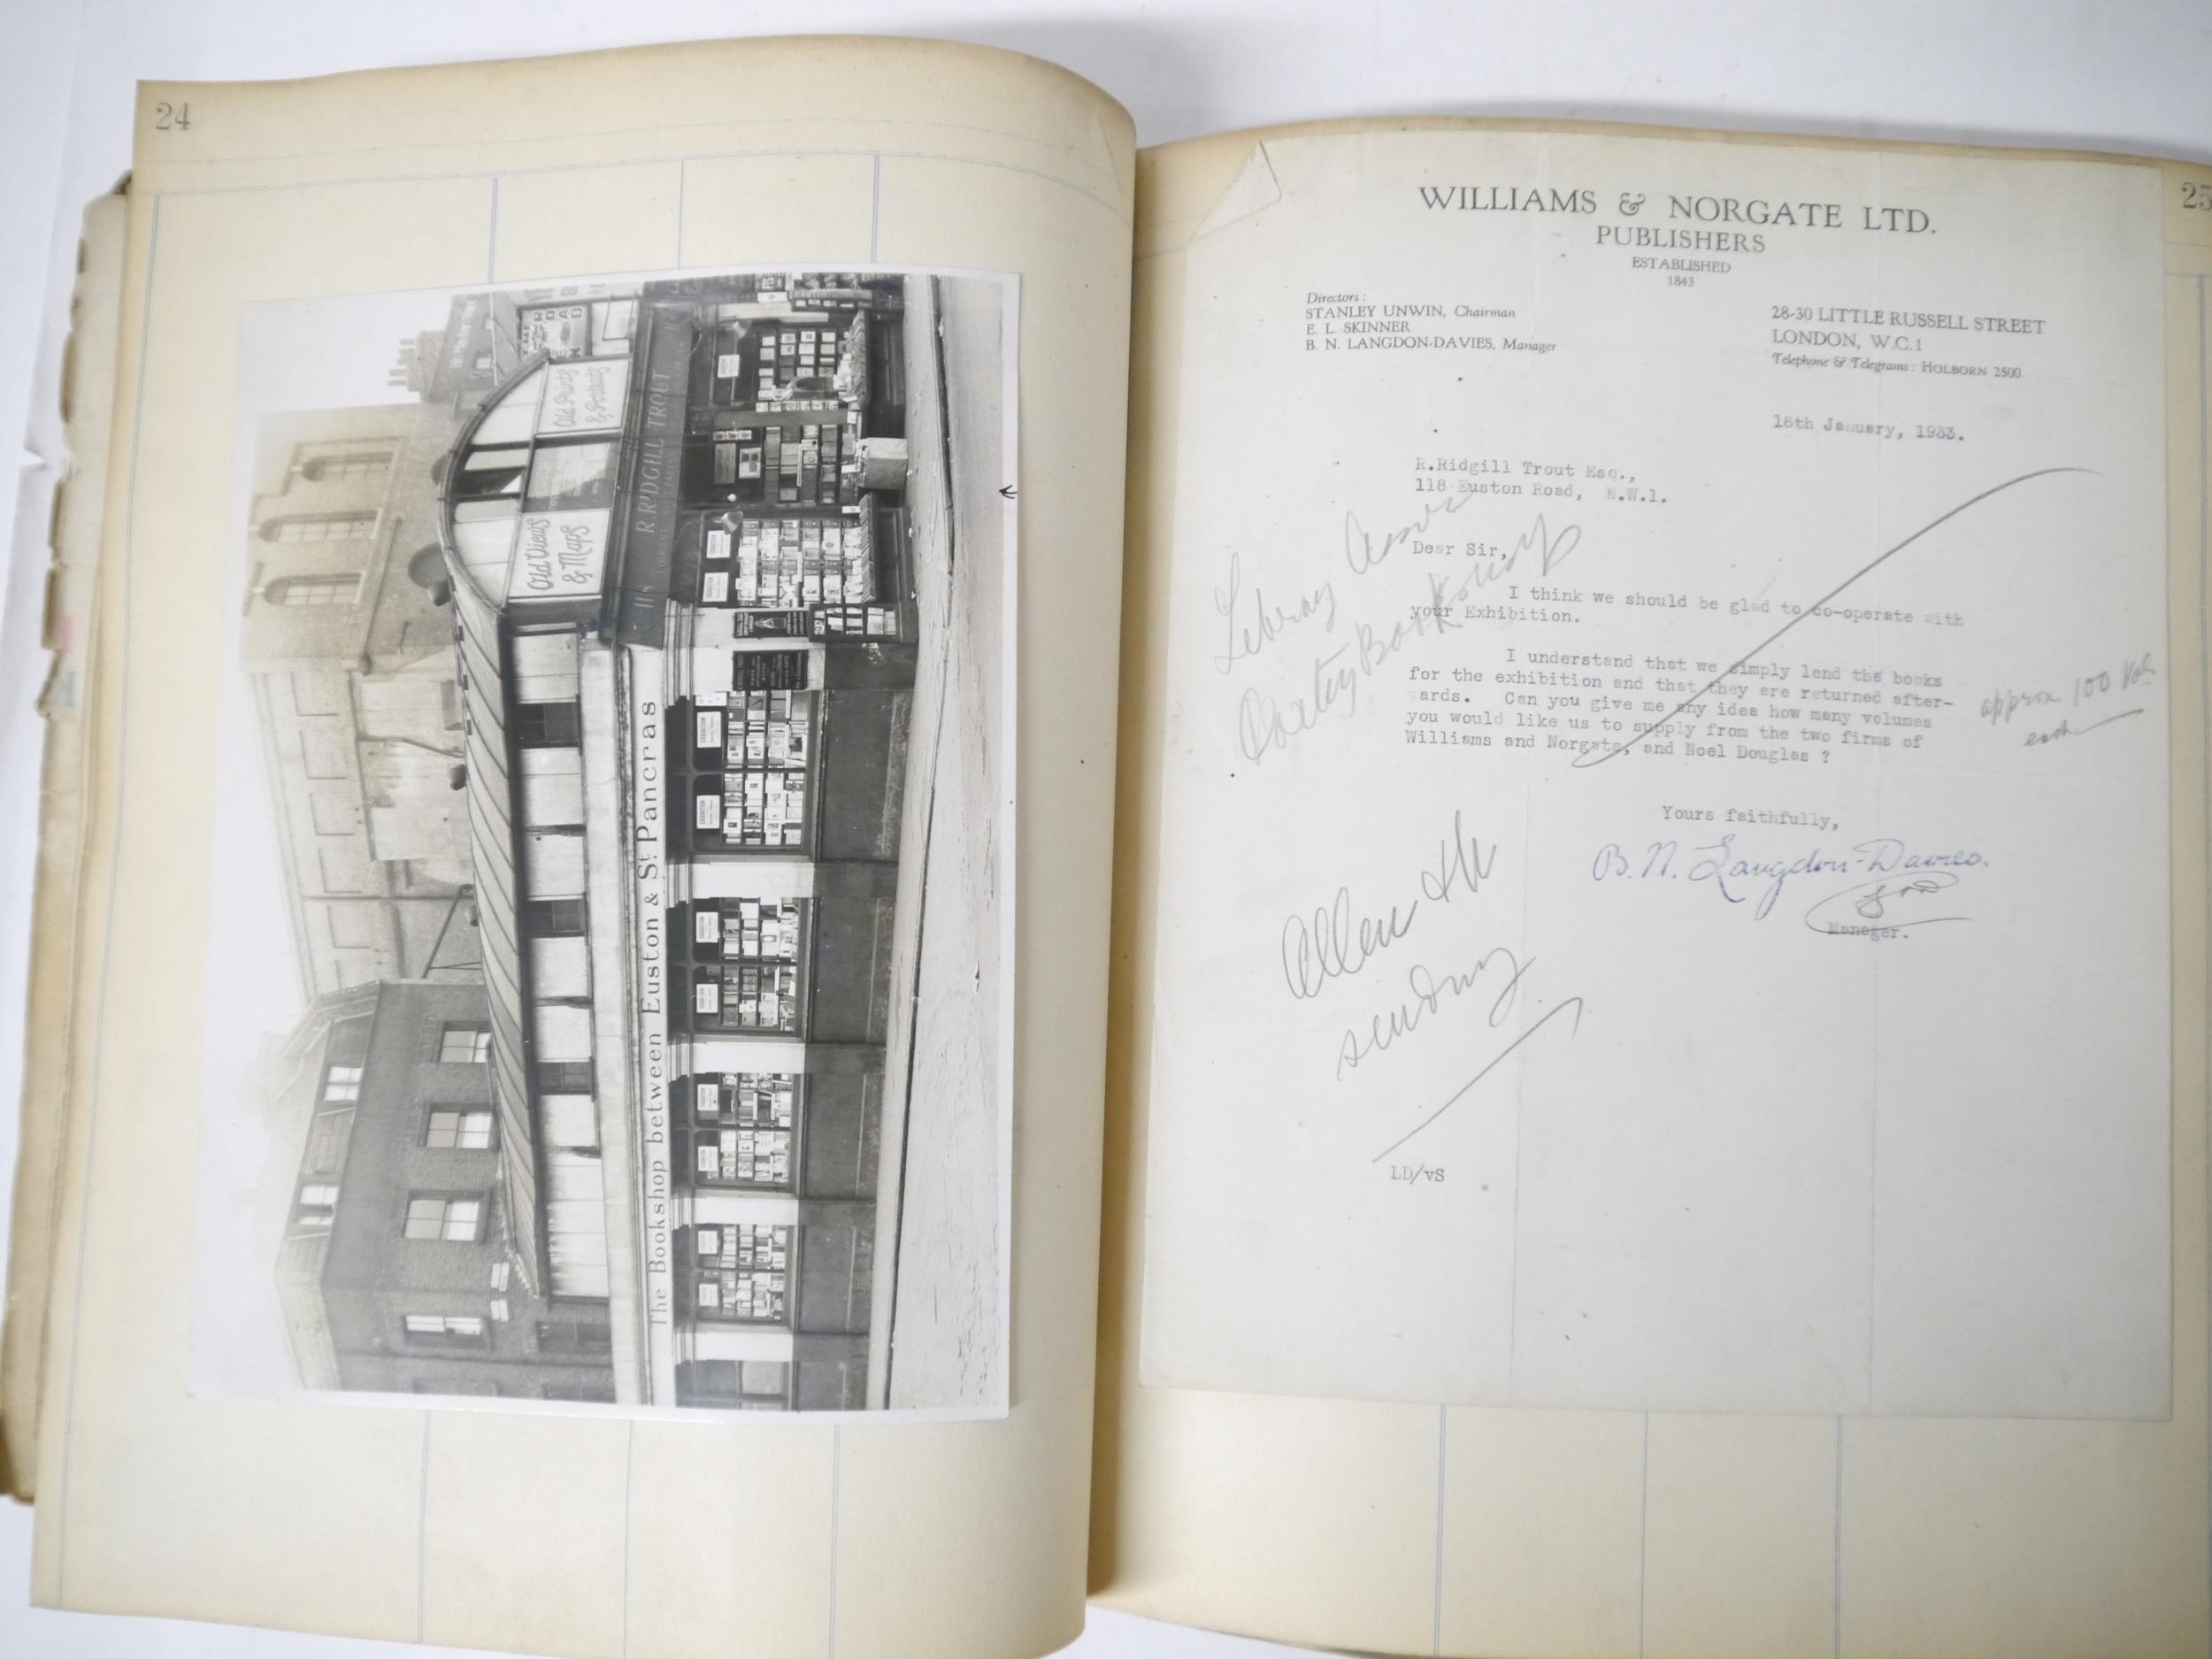 24
Old Views
& Maps
Old Prints
& Portraits
118
R. RIDGILL TROUT
The Bookshop between Euston & St. Pancras
25
WILLIAMS & NORGATE LTD.
PUBLISHERS
ESTABLISHED
1843
Directors:
STANLEY UNWIN, Chairman
E. L. SKINNER
B. N. LANGDON-DAVIES, Manager
28-30 LITTLE RUSSELL STREET
LONDON, W.C.1
Telephone & Telegrams: HOLBORN 2500
18th January, 1933.
R.Ridgill Trout Esq.,
118 Euston Road, N.W.1.
Dear Sir,
I think we should be glad to co-operate with
your Exhibition.
I understand that we simply lend the books
for the exhibition and that they are returned after-
wards. Can you give me any idea how many volumes
you would like us to supply from the two firms of
Williams and Norgate, and Noel Douglas ?
approx 100 Vols
each
Library
Poetry Bookshop
Yours faithfully,
B. N. Langdon-Davies.
Manager.
Allen
sending
LD/vS